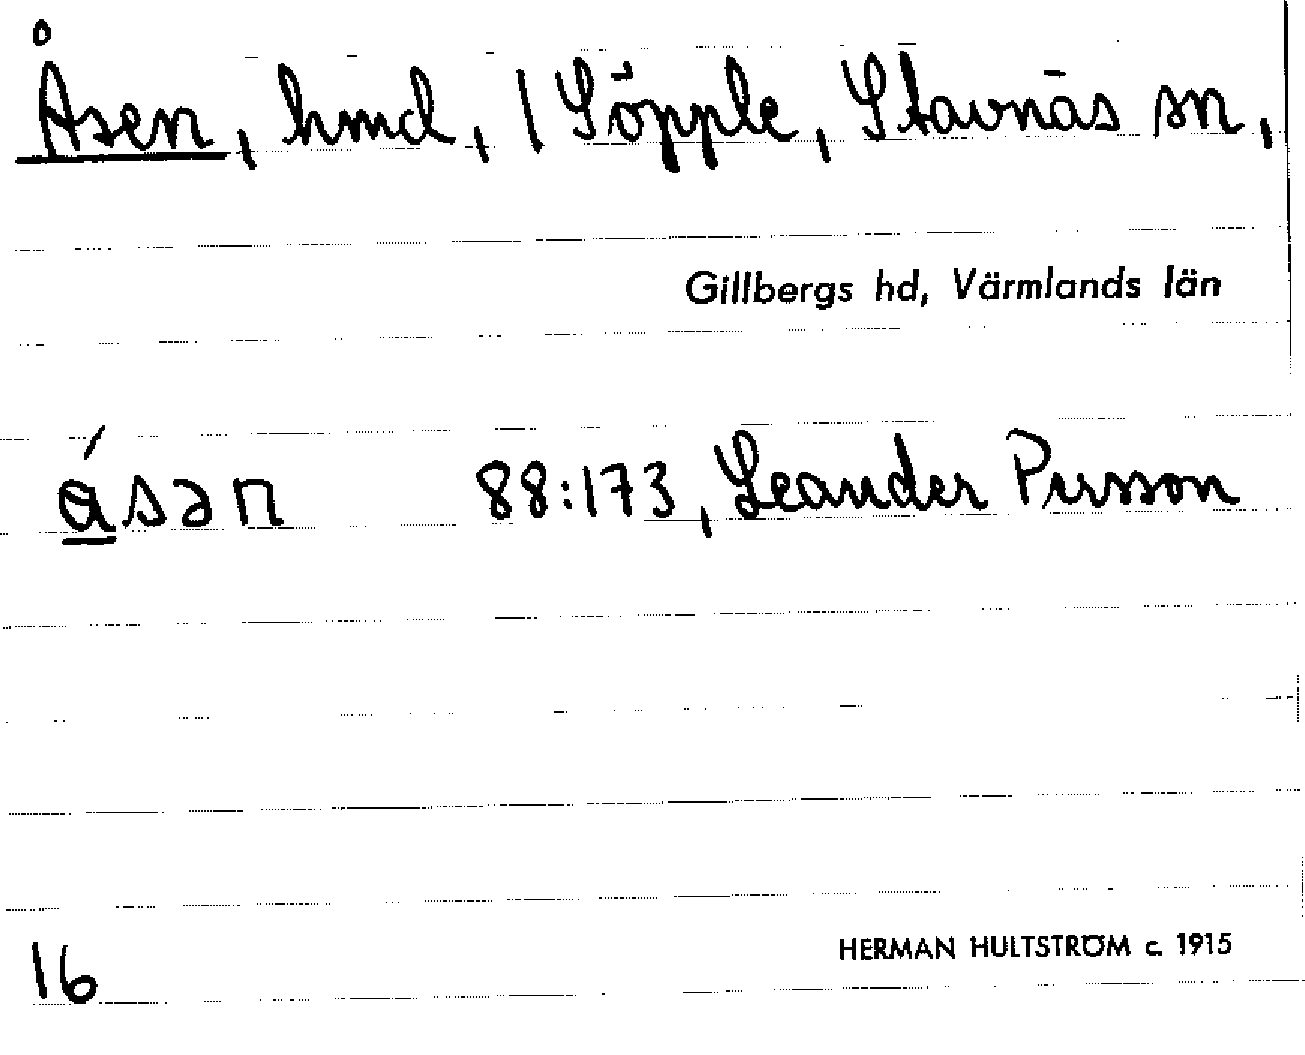 Åsen, hmd, 1 Söpple, Stavnäs sn,
Gillbergs hd, Värmlands län
ásən 88:173, Leander Persson
16
HERMAN HULTSTRÖM c. 1915